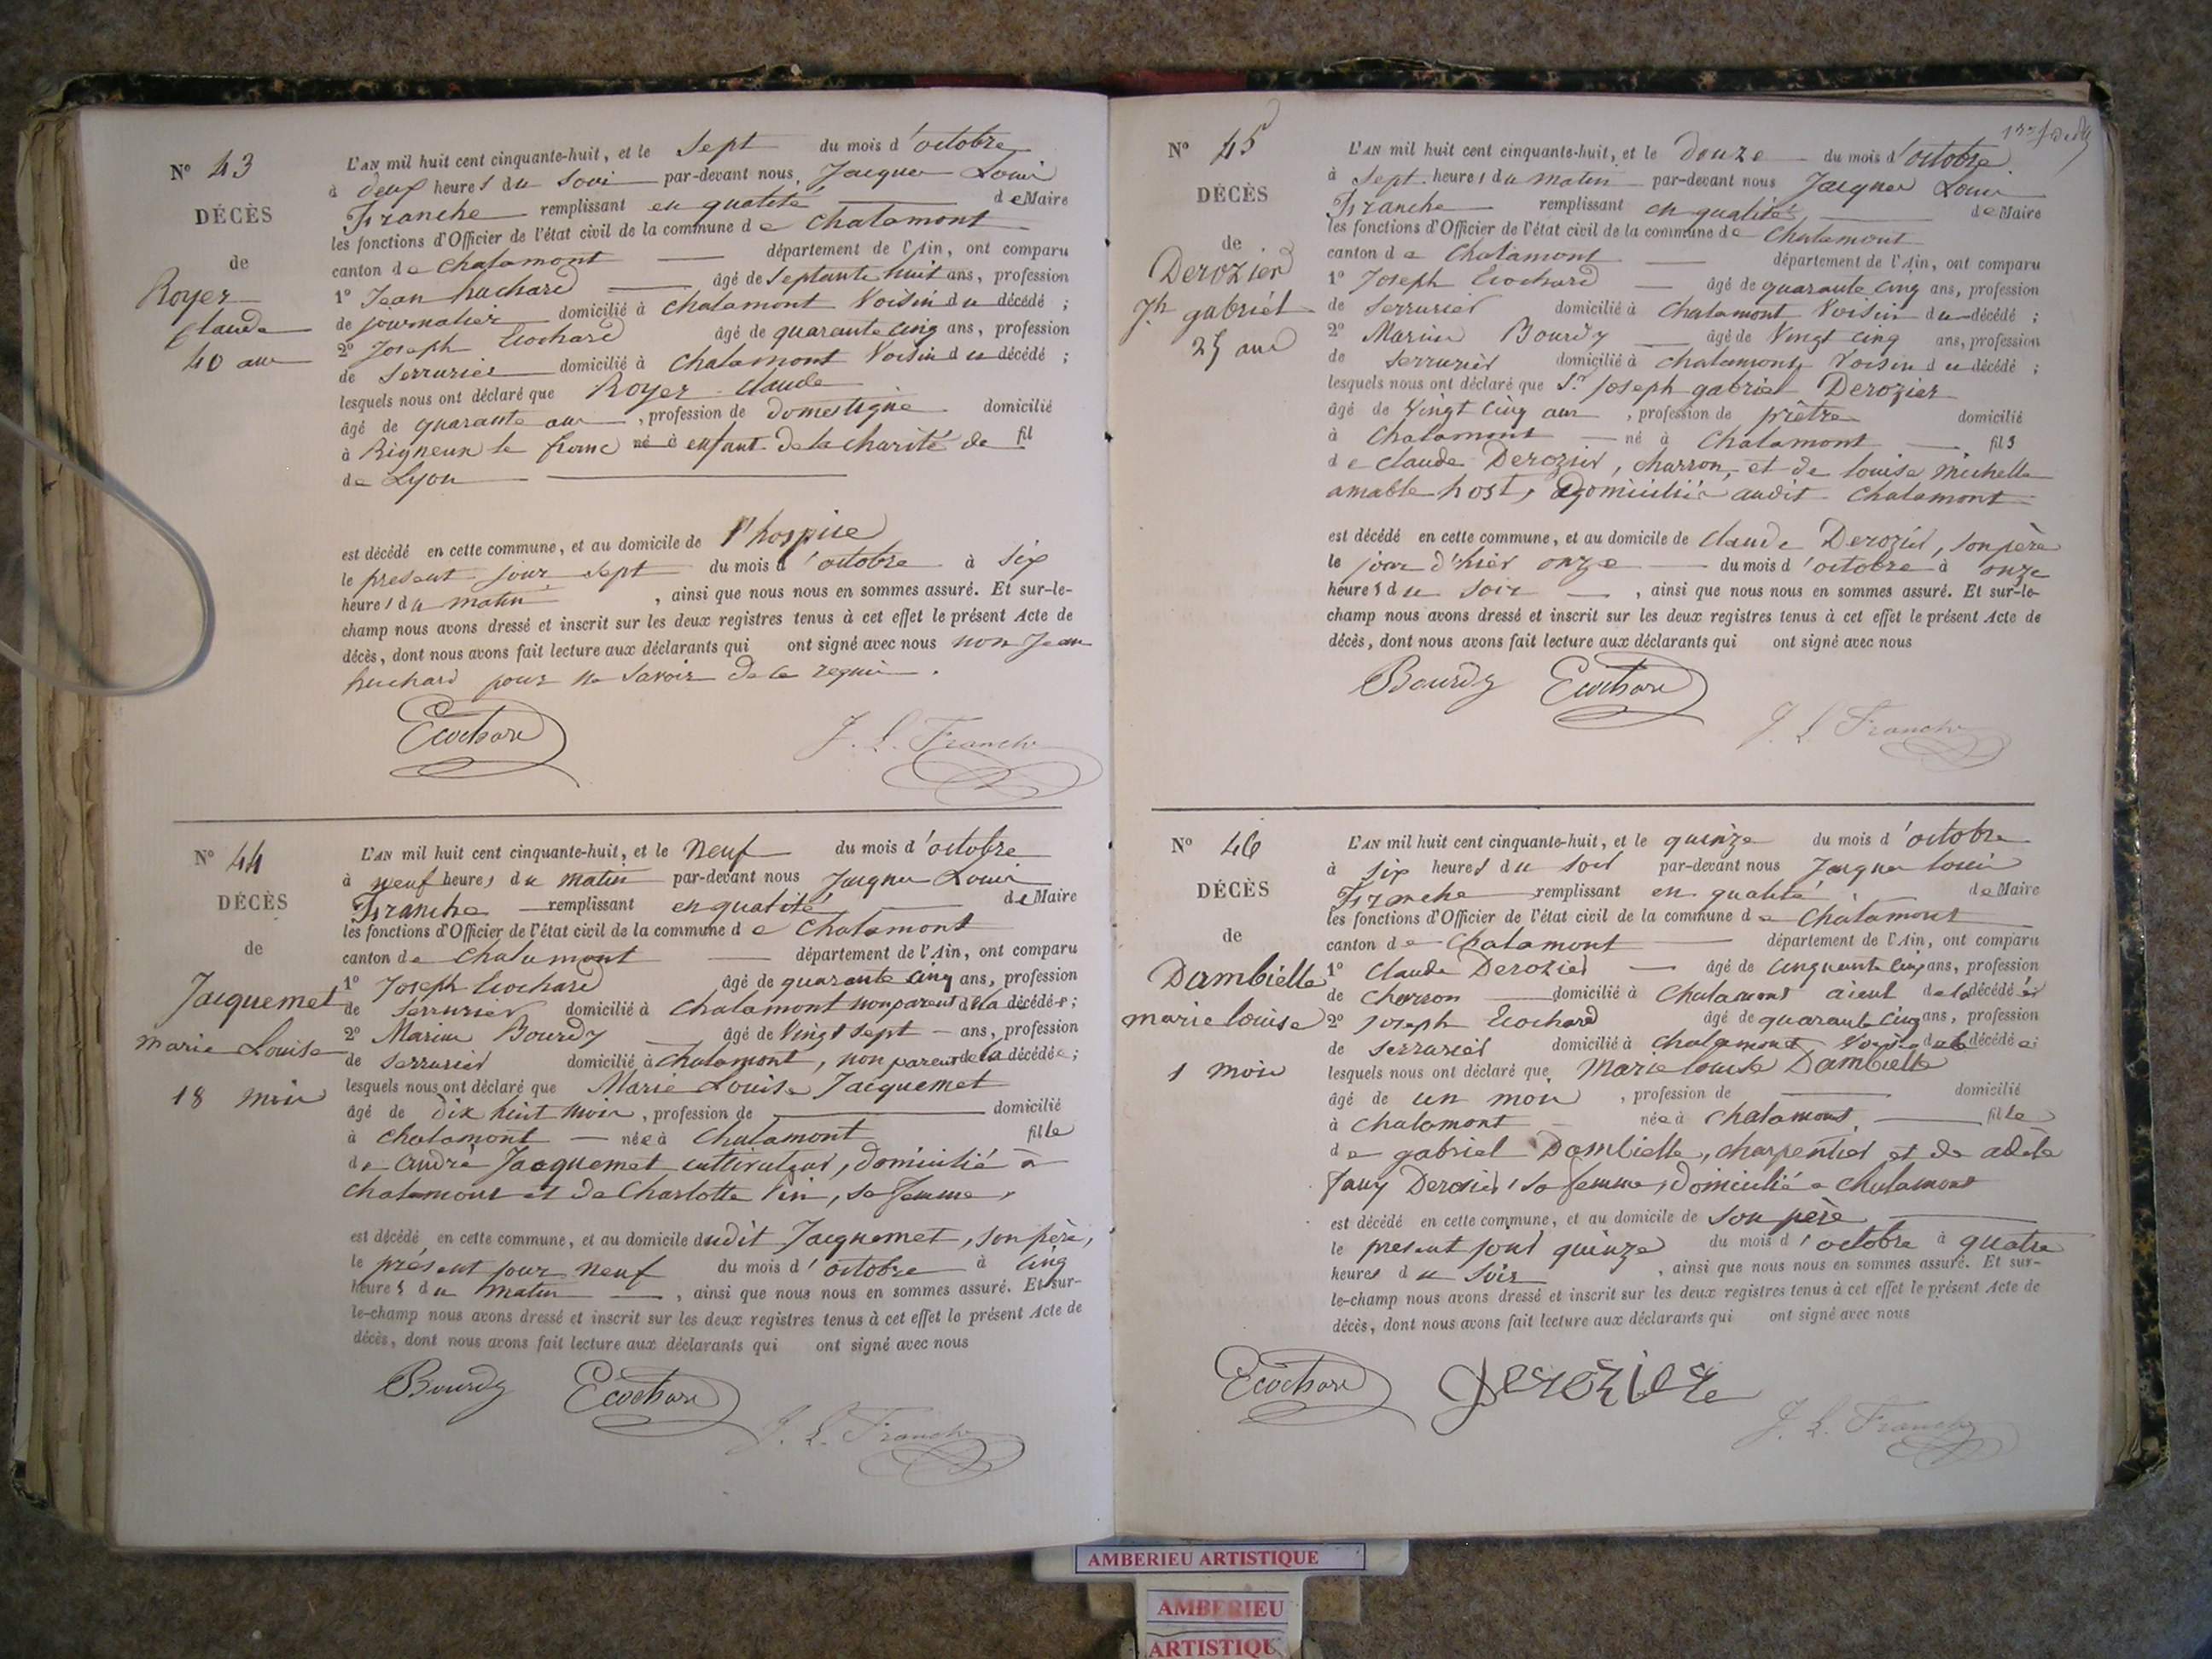 N° 43
DÉCÈS
de
Royer
Claude
40 ans
L'AN mil huit cent cinquante-huit, et le sept du mois d'octobre
à deux heures du soir par-devant nous, Jacques Louis
Franche remplissant en qualité de Maire
les fonctions d'Officier de l'état civil de la commune de Chalamont
canton de Chalamont département de l'Ain, ont comparu
1° Jean huchard âgé de septante huit ans, profession
de journalier domicilié à Chalamont Voisin du décédé ;
2° Joseph Ecochard âgé de quarante cinq ans, profession
de serrurier domicilié à Chalamont Voisin du décédé ;
lesquels nous ont déclaré que Royer Claude
âgé de quarante ans, profession de domestique domicilié
à Rigneux le franc né à enfant de la charité de fil
de Lyon
est décédé en cette commune, et au domicile de l'hospice
le présent jour sept du mois d'octobre à six
heures du matin, ainsi que nous nous en sommes assuré. Et sur-le-
champ nous avons dressé et inscrit sur les deux registres tenus à cet effet le présent Acte de
décès, dont nous avons fait lecture aux déclarants qui ont signé avec nous non Jean
huchard pour ne savoir de ce requis.
Ecochard
J. L. Franche
N° 44
DÉCÈS
de
Jacquemet
Marie Louise
18 mois
L'AN mil huit cent cinquante-huit, et le neuf du mois d'octobre
à neuf heures du matin par-devant nous Jacques Louis
Franche remplissant en qualité de Maire
les fonctions d'Officier de l'état civil de la commune de Chalamont
canton de Chalamont département de l'Ain, ont comparu
1° Joseph Ecochard âgé de quarante cinq ans, profession
de serrurier domicilié à Chalamont non parent de la décédée ;
2° Marius Bourdy âgé de Vingt sept ans, profession
de serrurier domicilié à Chalamont, non parent de la décédée ;
lesquels nous ont déclaré que Marie Louise Jacquemet
âgé de dix huit mois, profession de domicilié
à Chalamont née à Chalamont fille
de André Jacquemet cultivateur, domicilié à
Chalamont et de Charlotte Vin, sa femme,
est décédé en cette commune, et au domicile dudit Jacquemet, son père,
le présent jour neuf du mois d'octobre à cinq
heures du matin, ainsi que nous nous en sommes assuré. Et sur-
le-champ nous avons dressé et inscrit sur les deux registres tenus à cet effet le présent Acte de
décès, dont nous avons fait lecture aux déclarants qui ont signé avec nous
Bourdy Ecochard
J. L. Franche
N° 45
DÉCÈS
de
Derozier
Jh gabriel
25 ans
L'AN mil huit cent cinquante-huit, et le douze du mois d'octobre
à sept heures du matin par-devant nous Jacques Louis
Franche remplissant en qualité de Maire
les fonctions d'Officier de l'état civil de la commune de Chalamont
canton de Chalamont département de l'Ain, ont comparu
1° Joseph Ecochard âgé de quarante cinq ans, profession
de serrurier domicilié à Chalamont Voisin du décédé ;
2° Marius Bourdy âgé de Vingt cinq ans, profession
de serrurier domicilié à Chalamont, Voisin du décédé ;
lesquels nous ont déclaré que Sr Joseph gabriel Derozier
âgé de Vingt cinq ans, profession de prêtre domicilié
à Chalamont né à Chalamont fils
de Claude Derozier, charron, et de louise michelle
amable host, domiciliés audit Chalamont
est décédé en cette commune, et au domicile de Claude Derozier, son père
le jour d'hier onze du mois d'octobre à onze
heures du soir, ainsi que nous nous en sommes assuré. Et sur-le-
champ nous avons dressé et inscrit sur les deux registres tenus à cet effet le présent Acte de
décès, dont nous avons fait lecture aux déclarants qui ont signé avec nous
Bourdy Ecochard
J. L. Franche
N° 46
DÉCÈS
de
Dambielle
marie louise
1 mois
L'AN mil huit cent cinquante-huit, et le quinze du mois d'octobre
à six heures du soir par-devant nous Jacques louis
Franche remplissant en qualité de Maire
les fonctions d'Officier de l'état civil de la commune de Chalamont
canton de Chalamont département de l'Ain, ont comparu
1° Claude Derozier âgé de cinquante cinq ans, profession
de charron domicilié à Chalamont aieul de la décédée
2° Joseph Ecochard âgé de quarante cinq ans, profession
de serrurier domicilié à Chalamont Voisin de la décédée ;
lesquels nous ont déclaré que Marie louise Dambielle
âgé de un mois, profession de domicilié
à Chalamont née à Chalamont, fille
de gabriel Dambielle, charpentier et de adèle
fany Derozier, sa femme, domicilié à Chalamont
est décédé en cette commune, et au domicile de son père
le présent jour quinze du mois d'octobre à quatre
heures du soir, ainsi que nous nous en sommes assuré. Et sur-
le-champ nous avons dressé et inscrit sur les deux registres tenus à cet effet le présent Acte de
décès, dont nous avons fait lecture aux déclarants qui ont signé avec nous
Ecochard Derozier
J. L. Franche
AMBERIEU ARTISTIQUE
AMBERIEU
ARTISTIQU